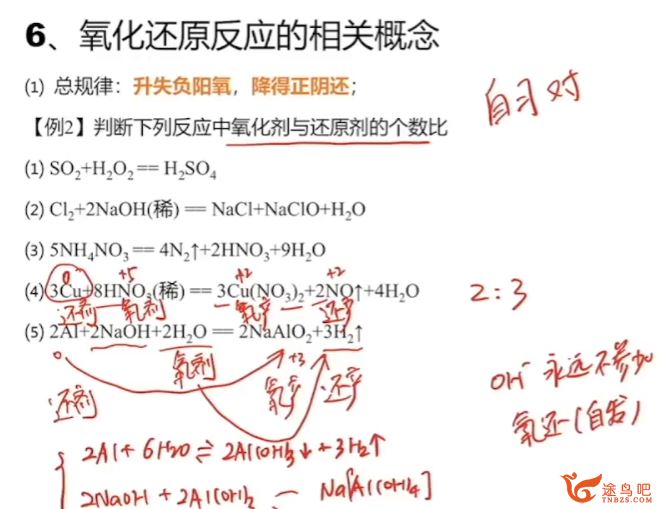 6、氧化还原反应的相关概念
(1) 总规律：升失负阳氧，降得正阴还；
自习 对
【例2】判断下列反应中氧化剂与还原剂的个数比
(1) SO₂+H₂O₂== H₂SO₄
(2) Cl₂+2NaOH(稀) == NaCl+NaClO+H₂O
(3) 5NH₄NO₃== 4N₂↑+2HNO₃+9H₂O
0 +5 +2 +2
(4) 3Cu+8HNO₃(稀) == 3Cu(NO₃)₂+2NO↑+4H₂O 2:3
还剂 氧剂 氧产 还产
(5) 2Al+2NaOH+2H₂O == 2NaAlO₂+3H₂↑
0 +3
还剂 氧剂 氧产 还产
OH⁻ 永远不参加
氧还(自发)
2Al+6H₂O ⇌ 2Al(OH)₃↓+3H₂↑
2NaOH + 2Al(OH)₃ — Na[Al(OH)₄]
途鸟吧
TNBZS.COM